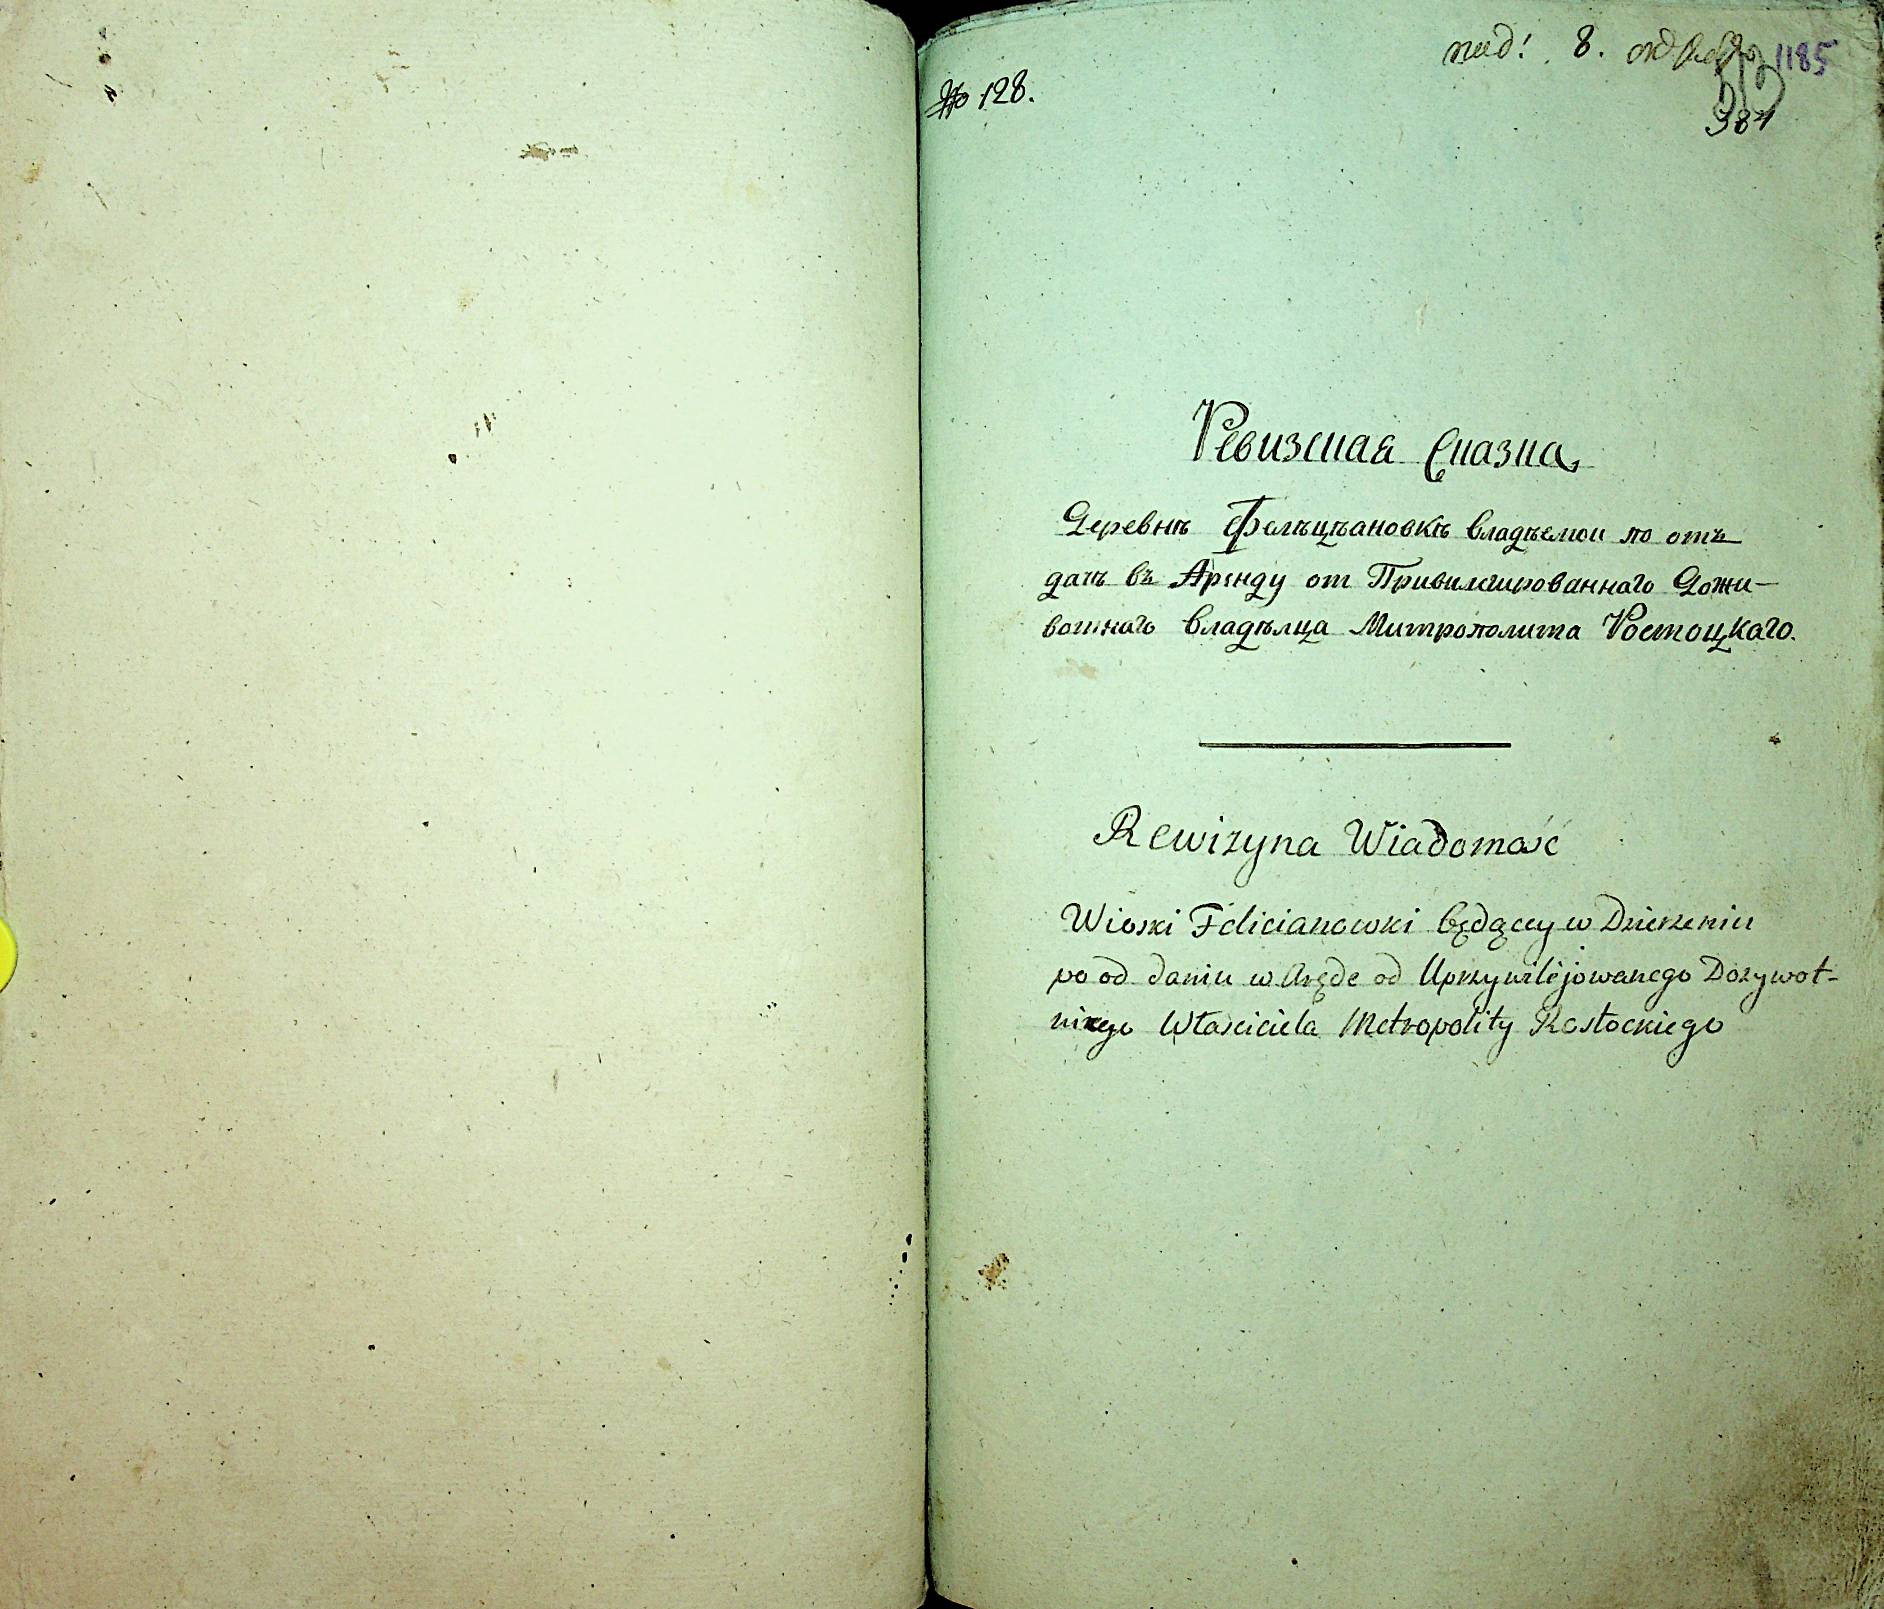 № 128.
под: 8. октября 1185
381
Ревизская Сказка
Деревнѣ Фелѣцѣановкѣ владѣемои по отъ
дачѣ въ Аренду от Привилегированнаго Дожи-
вотнаго владѣлца Митрополита Ростоцкаго.
Rewizyna Wiadomość
Wioski Felicianowki będącey w Dzierżeniu
po od daniu w Arędę od Uprzywilejowanego Dożywot-
niego Własciciela Metropolity Rostockiego